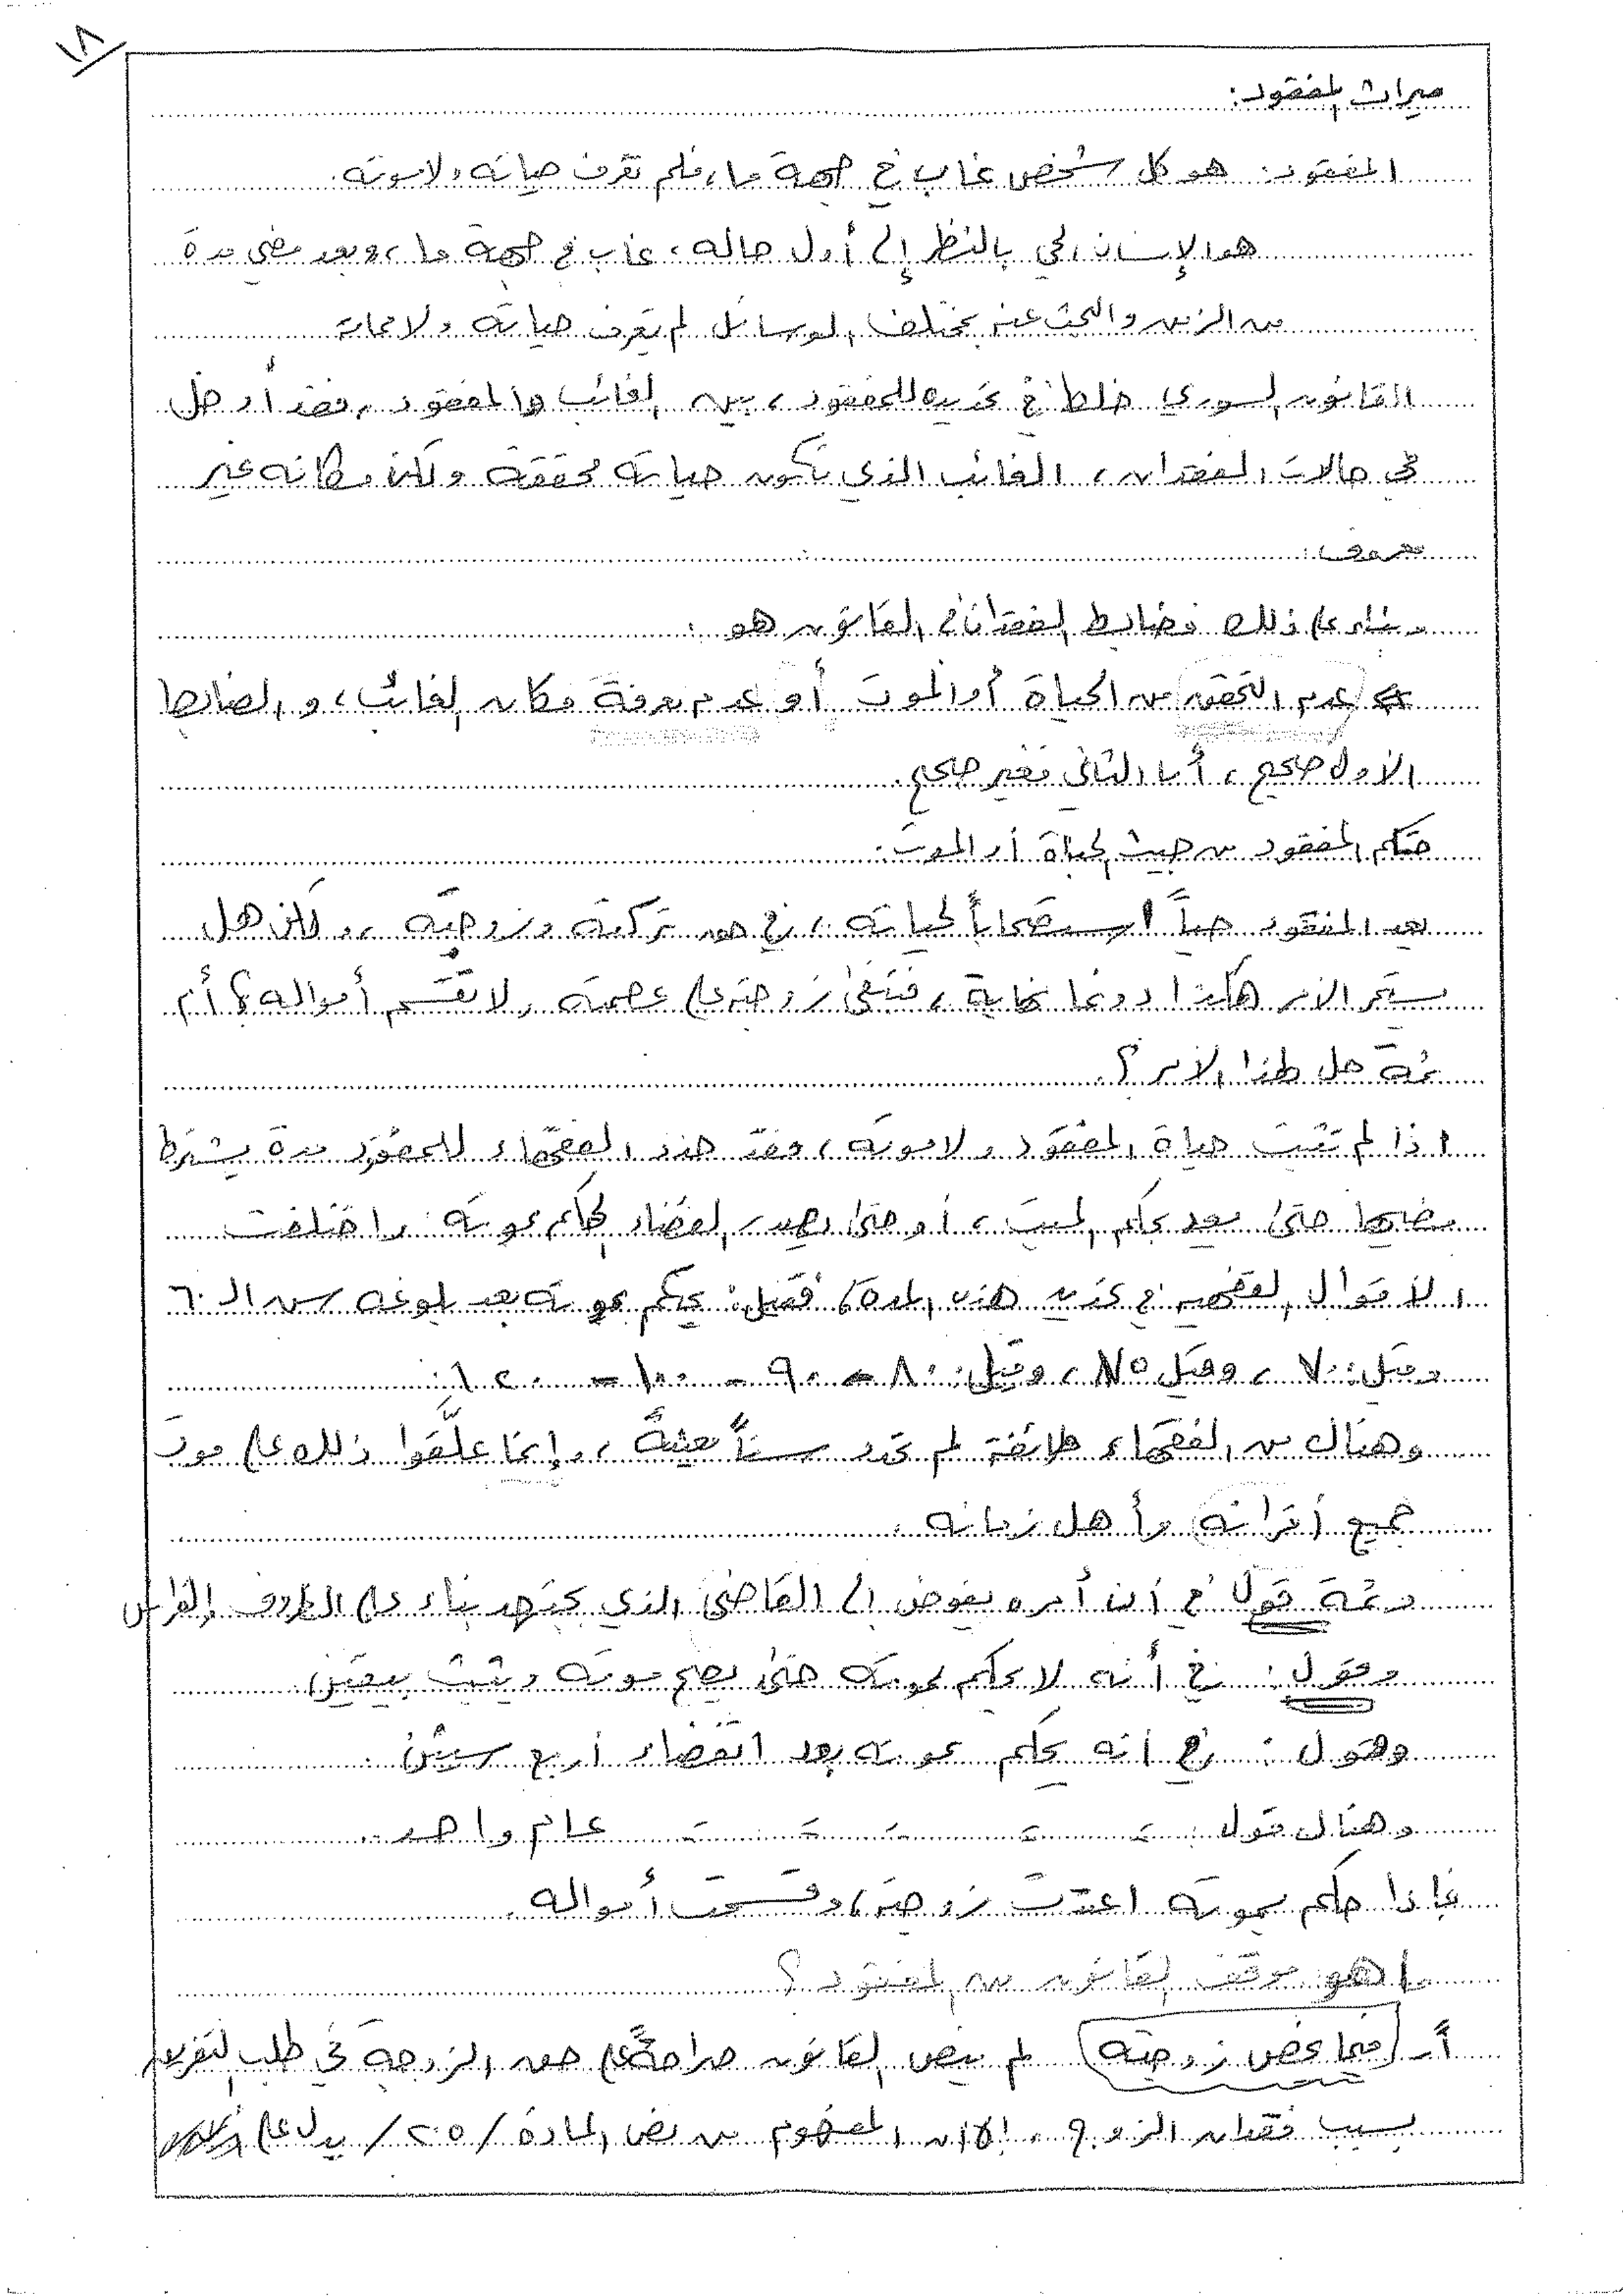 ١٨
ميراث المفقود:
المفقود: هو كل شخص غاب في جهة ما، فلم تعرف حياته ولا موته.
هو الإنسان الحي بالنظر إلى أول حاله، غاب في جهة ما، وبعد مضي مدة
من الزمن والبحث عنه بمختلف الوسائل لم يعرف حياته ولا مماته
القانون السوري خلط في تحديده للمفقود، بين الغائب والمفقود، فقد أدخل
في حالات الفقدان، الغائب الذي تكون حياته محققة ولكن مكانه غير
معروف.
وبناء على ذلك فضابط الفقدان في القانون هو:
عدم التحقق من الحياة أو الموت أو عدم معرفة مكان الغائب، والضابط
الأول صحيح، أما الثاني فغير صحيح.
حكم المفقود من حيث الحياة أو الموت.
يعد المفقود حياً استصحاباً لحياته، في حق تركته وزوجته، ولكن هل
يستمر الأمر هكذا دونما نهاية، فتبقى زوجته على عصمته ولا تقسم أمواله؟ أم
ثمة حل لهذا الأمر؟
إذا لم تثبت حياة المفقود ولا موته، فقد حدد الفقهاء للمفقود مدة يشترط
مضيها حتى يعد بحكم الميت، أو حتى يصدر القضاء الحكم بموته واختلفت
الأقوال الفقهية في تحديد هذه المدة، فقيل: يحكم بموته بعد بلوغه سن الـ ٦٠
وقيل: ٧٠، وقيل ٧٥، وقيل: ٨٠ - ٩٠ - ١٠٠ - ١٢٠.
وهناك من الفقهاء طائفة لم تحدد سناً معينة، وإنما علقوا ذلك على موت
جميع أقرانه وأهل زمانه.
وثمة قول في أن أمره يفوض إلى القاضي الذي يجتهد بناء على الظروف والقرائن
وقول: في أنه لا يحكم بموته حتى يصح موته ويثبت بيقين.
وقول: في أنه يحكم بموته بعد انقضاء أربع سنين.
وهناك قول: = = = = = عام واحد.
فإذا حكم بموته اعتدت زوجته، وقسمت أمواله.
ما هو موقف القانون من المفقود؟
أ- فيما يخص زوجته لم ينص القانون صراحةً على حق الزوجة في طلب التفريق
بسبب فقدان الزوج، إلا أن المفهوم من نص المادة /٢٠٥/ يدل على